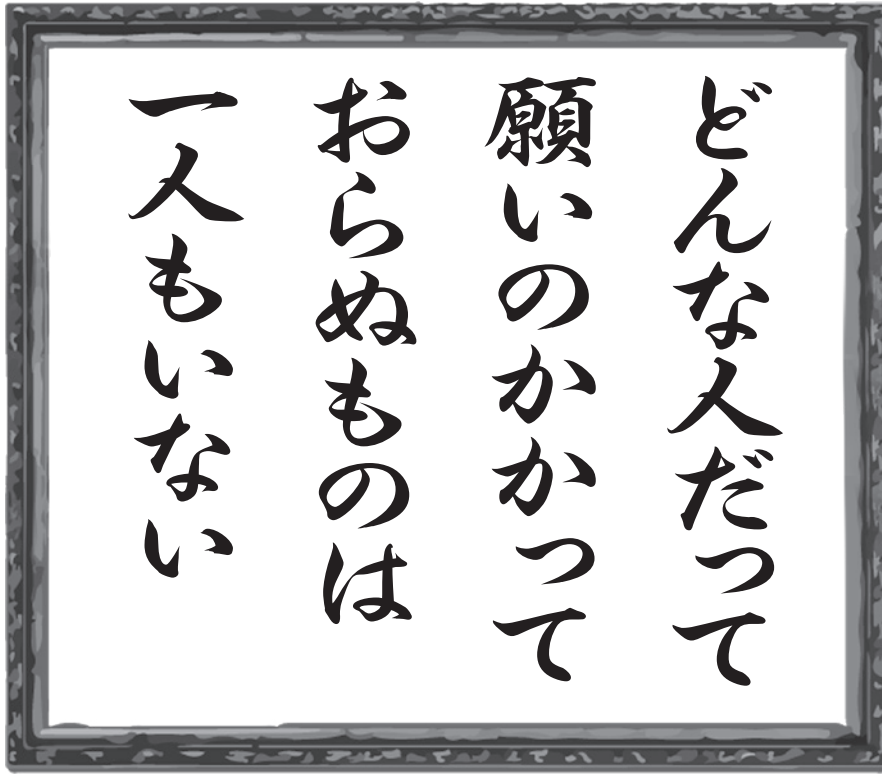 どんな人だって
願いのかかって
おらぬものは
一人もいない